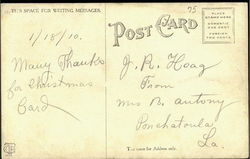 THIS SPACE FOR WRITING MESSAGES
POST CARD
PLACE
STAMP HERE
DOMESTIC
ONE CENT
FOREIGN
TWO CENTS
75
1/18/10.
Many Thanks
for Christmas
Card
J. R. Hoag
From
Mrs B. Antony
Ponchatoula
La.
This space for Address only.